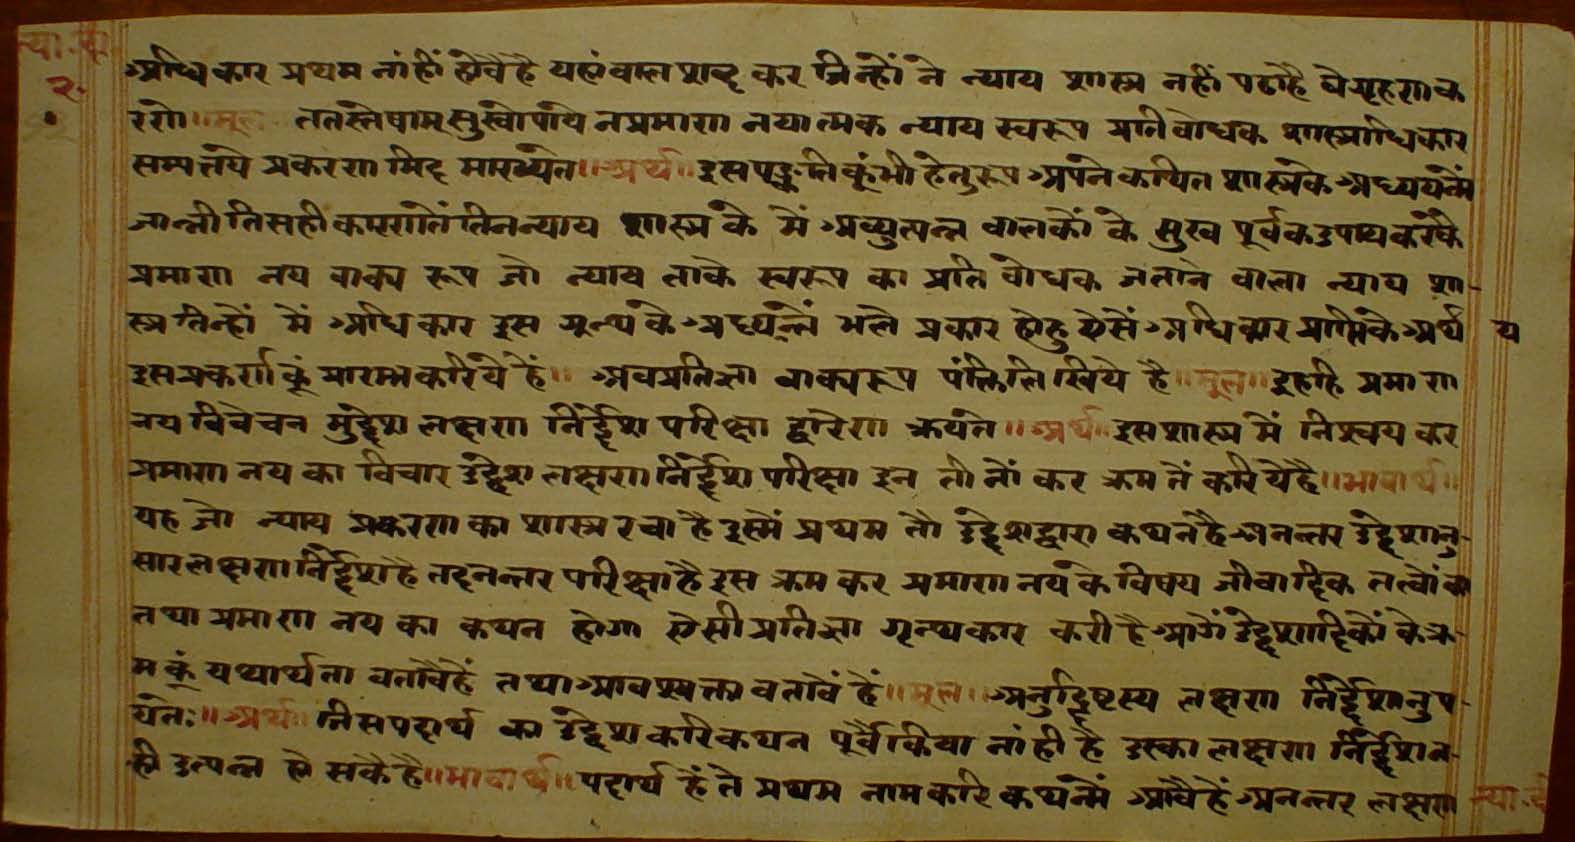 न्या. दी.
२.
अधिकार प्रथम नांहीं होवैहै यहां बाल शब्द कर जिन्हों ने न्याय शास्त्र नहीं पढाहै वे ग्रहणक
रणे॥मूल ततस्तेषाम् सुखोपाये न प्रमाण नयात्मक न्याय स्वरूप प्रतिबोधक शास्त्राधिकार
सम्पत्तये प्रकरण मिद मारभ्यते॥अर्थ॥इस पङ्क्ति कूंभी हेतुरूप अपने कथित शास्त्रके अध्ययनमें
जान्नी तिसही कारणतें तिन न्याय शास्त्र के में अव्युत्पन्न बालकों के सुख पूर्वक उपाय करके
प्रमाण नय वाक्य रूप जो न्याय ताके स्वरूप का प्रति बोधक जताने वाला न्याय शा-
स्त्र तिन्हों में अधिकार इस ग्रन्थके अध्यन्में भले प्रकार होहु ऐसें अधिकार प्राप्तिके अर्थ य
इसप्रकर्ण कूं प्रारम्भ करिये हैं॥ अब प्रतिज्ञा वाक्यरूप पंक्ति लिखिये है॥मूल॥इहहि प्रमाण
नय विवेचन मुद्देश लक्षण निर्द्देश परिक्षा द्वारेण क्रयते॥अर्थ॥इस शास्त्र में निश्चय कर
प्रमाण नय का विचार उद्देश लक्षण निर्द्देश परिक्षा इन तीनों कर क्रम तें करियेहै॥भावार्थ॥
यह जो न्याय प्रकरण का शास्त्र रचा है इस्में प्रथम तौ उद्देशद्वारा कथन है अनन्तर उद्देशानु-
सार लक्षण निर्द्देश है तदनन्तर परिक्षा है इस क्रम कर प्रमाण नय के विषय जीवादिक तत्वों का
तथा प्रमाण नय का कथन होगा ऐसी प्रतिज्ञा गृन्थकार करी है आगें उद्देशादिकों के क्र-
म कूं यथार्थता बतावैहैं तथा आवश्यक्ता बतावैं हैं॥मूल॥अनुद्दिष्टस्य लक्षण निर्द्देशानुप-
यतेः॥अर्थ॥जिस पदार्थ का उद्देश करि कथन पूर्वै किया नांही है उस्का लक्षण निर्द्देश न-
ही उत्पन्न हो सकै है॥भावार्थ॥पदार्थ हैं ते प्रथम नामकरि कथन्में आवैहैं अनन्तर लक्षण
न्या. दी